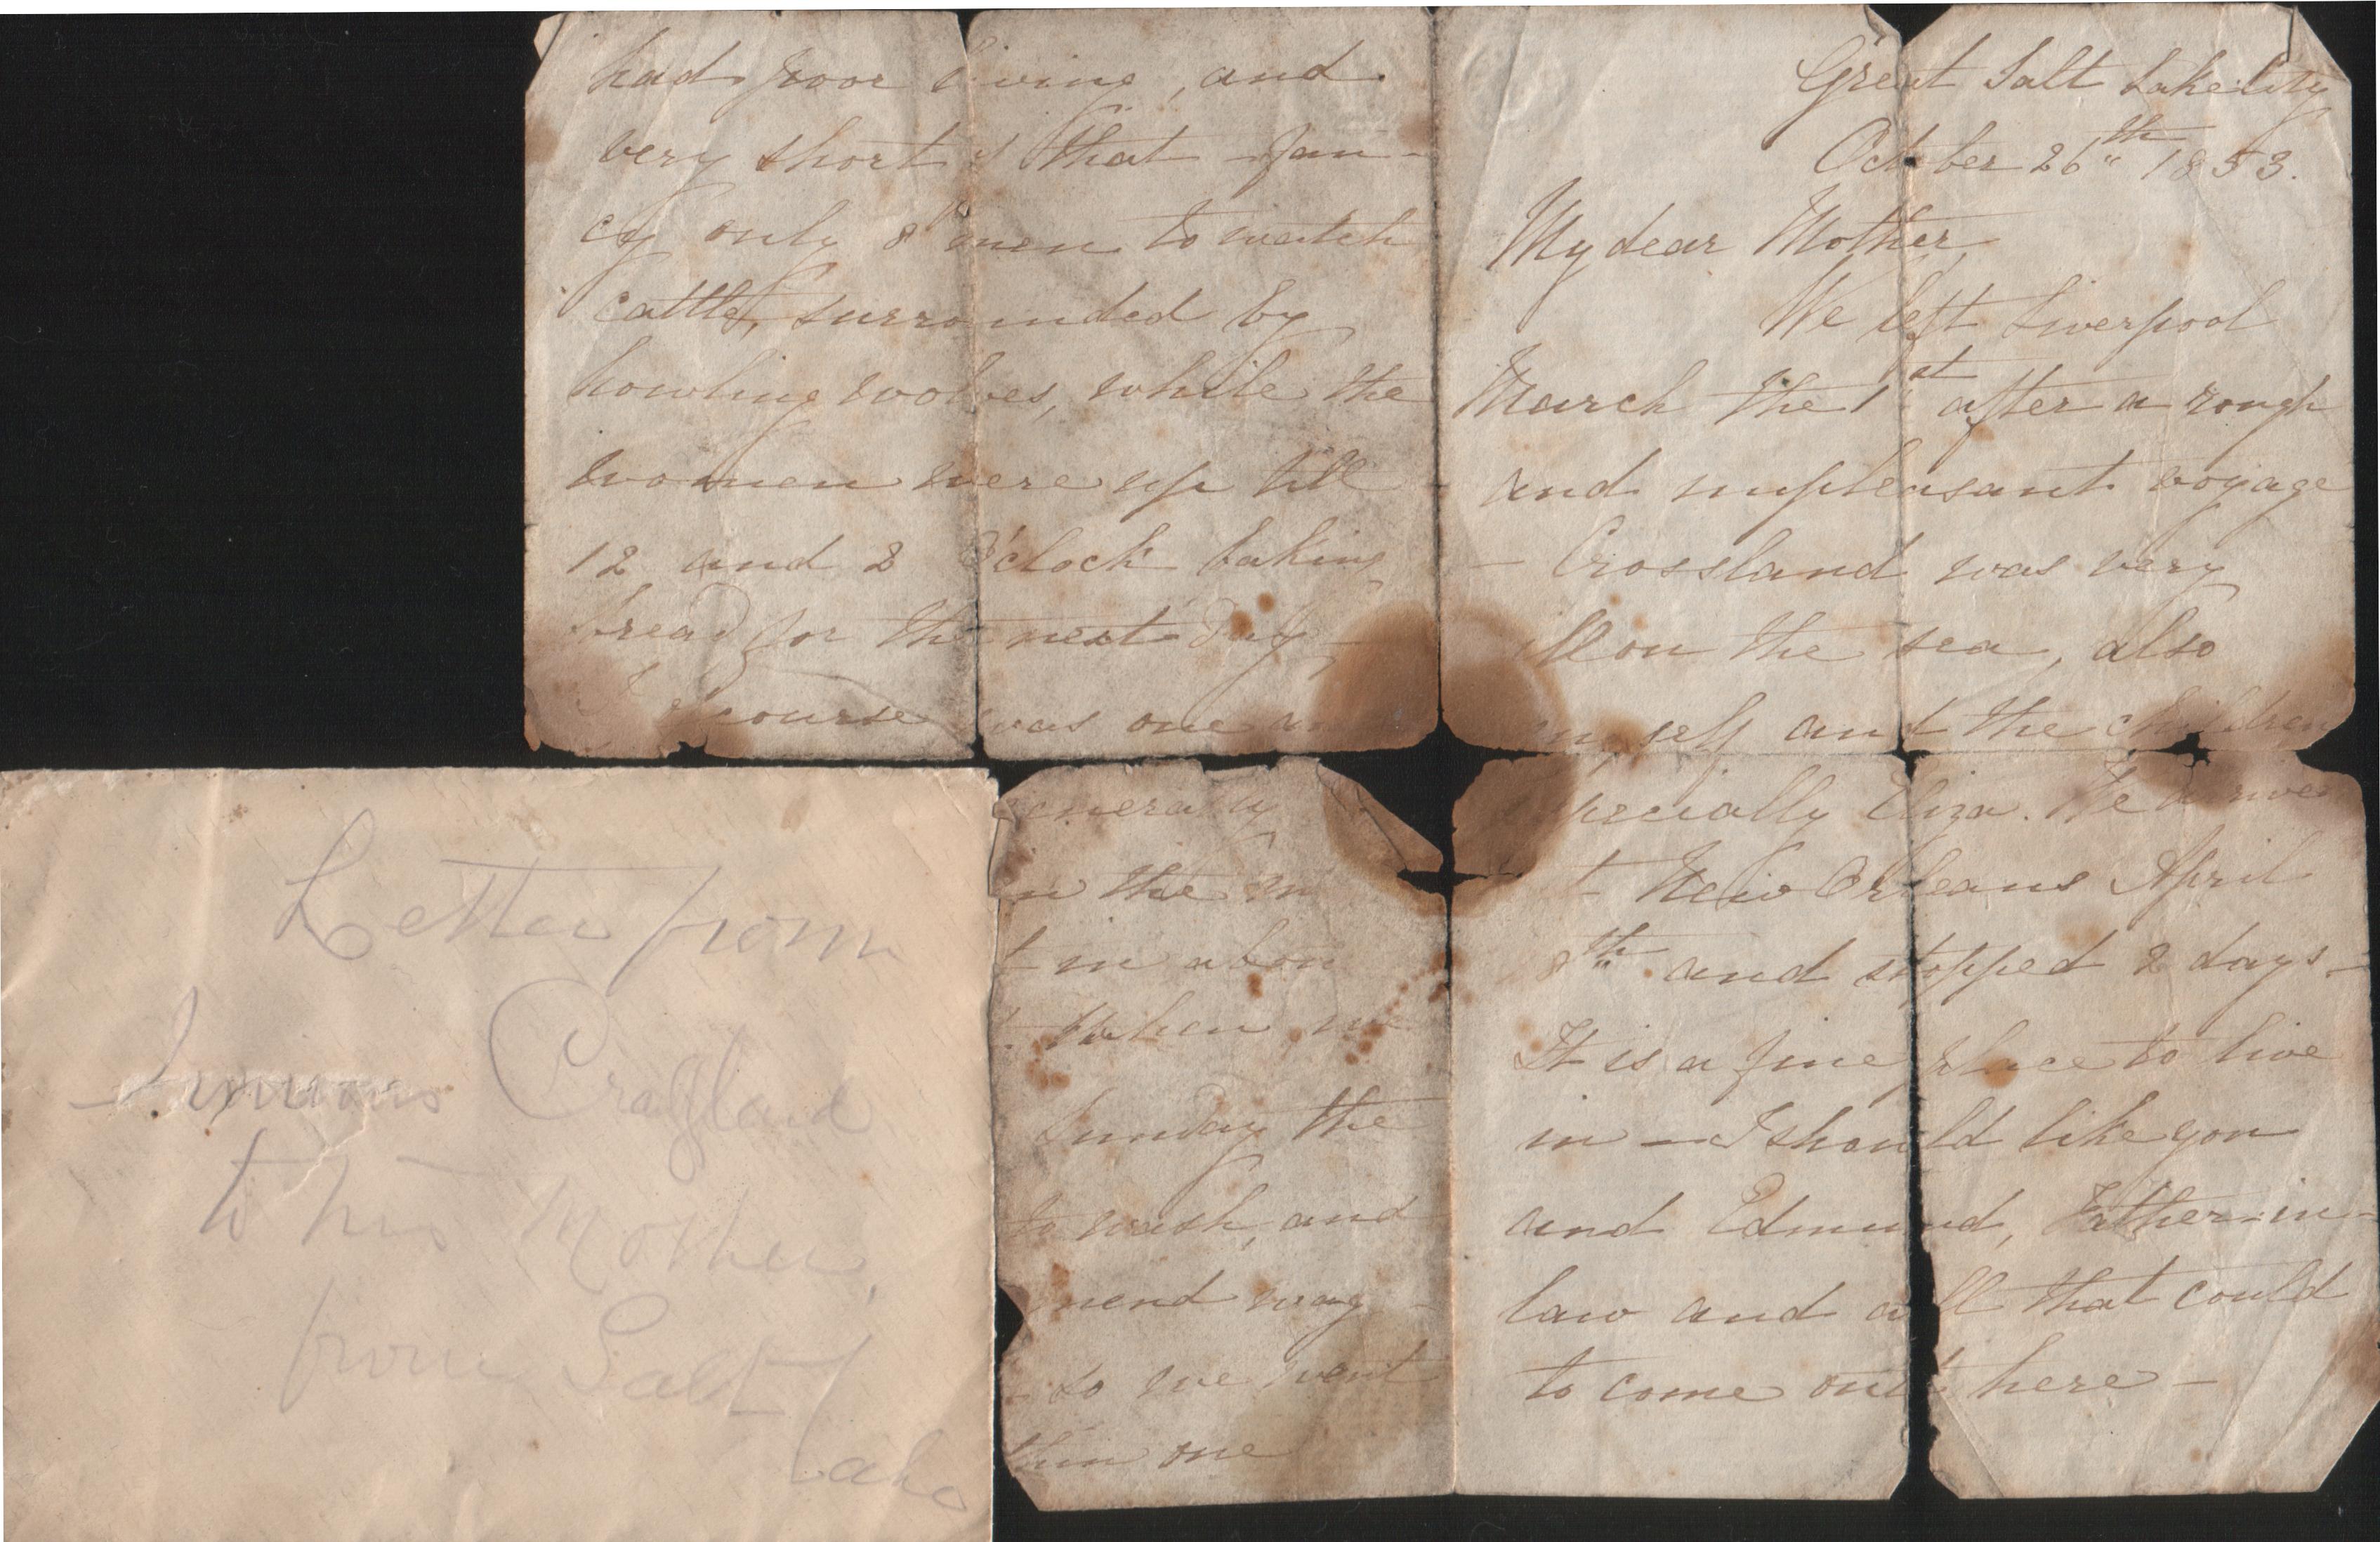 Great Salt Lake City
October 26th 1853.
My dear Mother,
We left Liverpool
March the 1st after a rough
and unpleasant voyage
– Crossland was very
ill on the sea, also
myself and the children
specially Eliza. We arrive
t New Orleans April
8th and stopped 2 days –
It is a fine place to live
in – I should like you
and Edmund, Father-in-
law and all that could
to come out here –
had poor living, and
very short of that – fan-
cy only 8 men to watch
cattle, surrounded by
howling wolves, while the
women were up till
12 and 2 O'clock baking
bread for the next day
course was one
enerally
n the m
t in abou
when we
Sunday the
to wash, and
mend wag
– so we went
thin one
Letter from
to his Mother,
from Salt
Lake